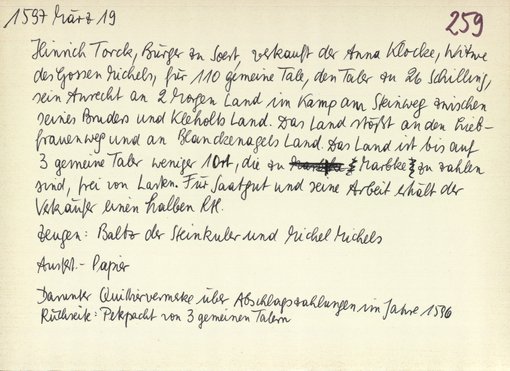 1597 März 19
259
Hinrich Torck, Bürger zu Soest, verkauft der Anna Klocke, Witwe
des Gossen Michels, für 110 gemeine Taler, den Taler zu 26 Schilling,
sein Anrecht an 2 Morgen Land im Kamp am Steinweg zwischen
seines Bruders und Kleholts Land. Das Land stößt an den Lieb-
frauenweg und an Blanckenagels Land. Das Land ist bis auf
3 gemeine Taler weniger 1 Ort, die zu Marbke zu zahlen
sind, frei von Lasten. Für Saatgut und seine Arbeit erhält der
Verkäufer einen halben Rtl.
Zeugen: Baltz der Steinkuler und Michel Michels
Ausfert.- Papier
Darunter Quittvermerke über Abschlagszahlungen im Jahre 1596
Rückseite: Pekpacht von 3 gemeinen Talern